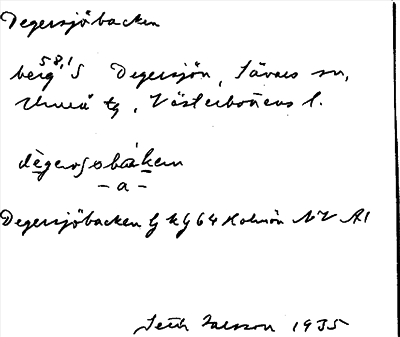 Degersjöbacken
58,1
berg S Degersjön, Sävars sn,
Umeå tg, Västerbottens l.
dègersjobàken
– a –
Degersjöbacken lj kg 64 Holmön NV A1
1935